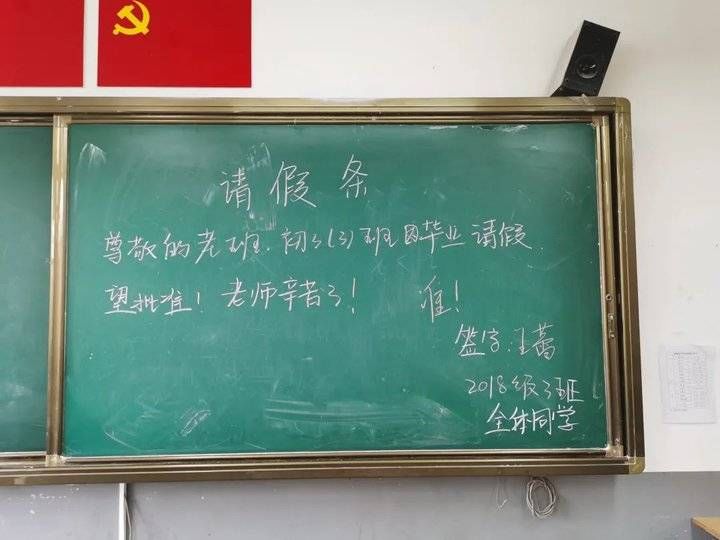 请假条
尊敬的老班、初3(3)班因毕业请假
望批准！老师辛苦了！ 准！
签字:王蕾
2018级3班
全体同学